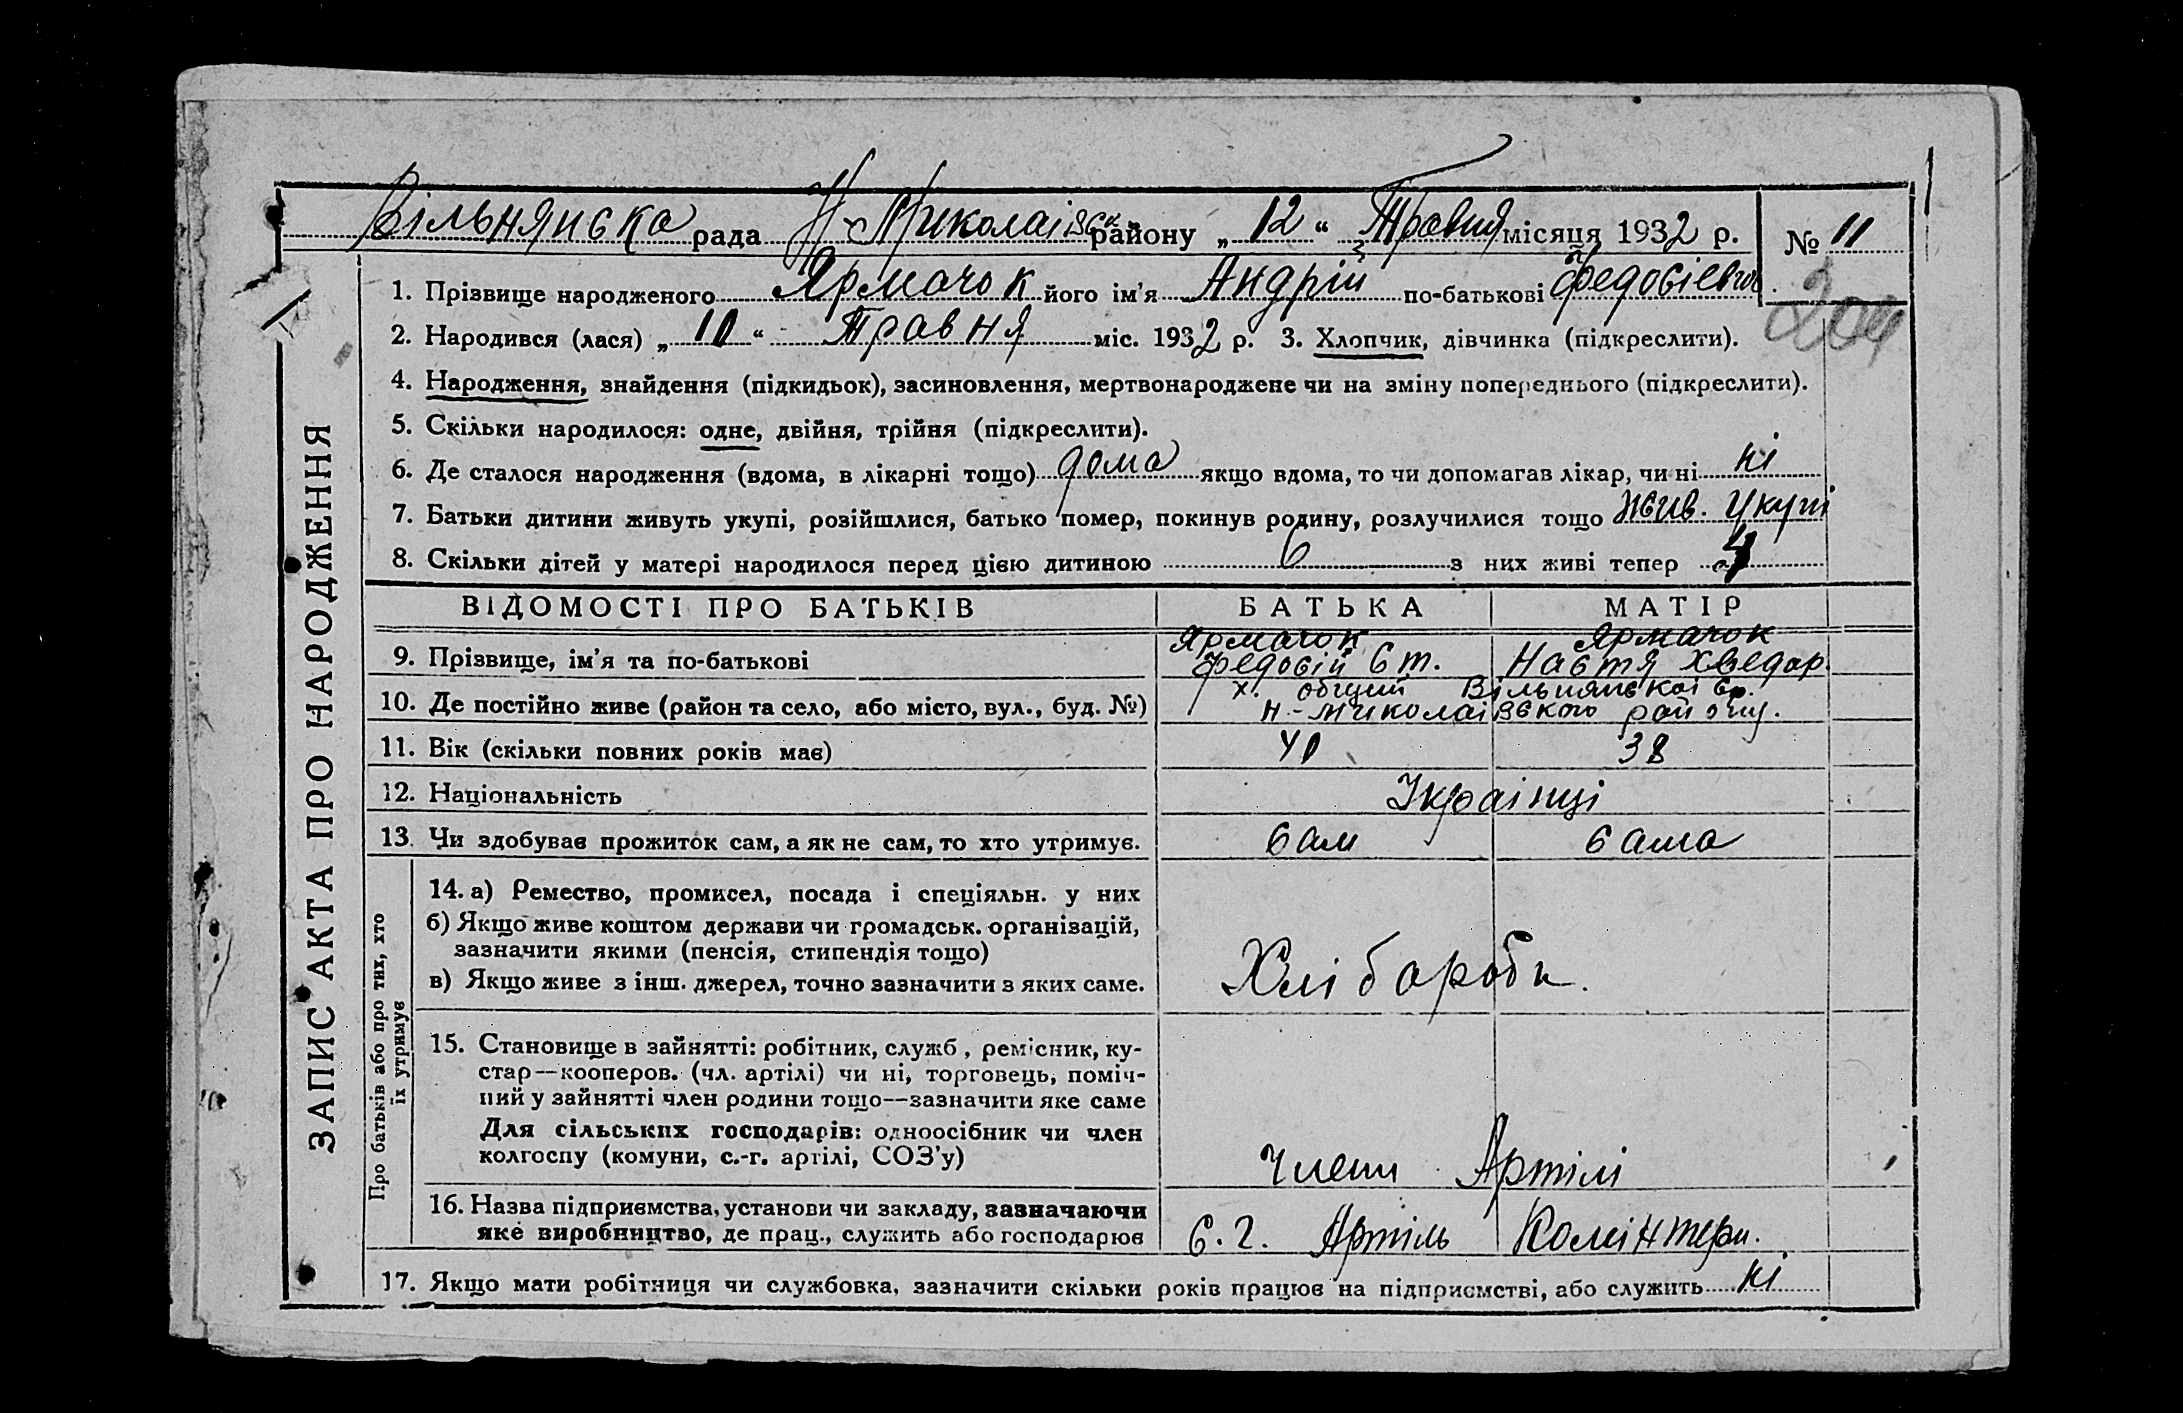 Вільнянска рада Н-Миколаівск району „12“ Травня місяця 1932 р. № 11
1. Прізвище народженого Ярмачок його ім'я Андрій по-батькові Федосіевич
204
2. Народився (лася) „10“ Травня міс. 1932 р. 3. Хлопчик, дівчинка (підкреслити).
4. Народження, знайдення (підкидьок), засиновлення, мертвонароджене чи на зміну попереднього (підкреслити).
5. Скільки народилося: одне, двійня, трійня (підкреслити).
6. Де сталося народження (вдома, в лікарні тощо) дома якщо вдома, то чи допомагав лікар, чи ні ні
7. Батьки дитини живуть укупі, розійшлися, батько помер, покинув родину, розлучилися тощо Жив. Укупі
8. Скільки дітей у матері народилося перед цією дитиною 6 з них живі тепер 4
ЗАПИС АКТА ПРО НАРОДЖЕННЯ
ВІДОМОСТІ ПРО БАТЬКІВ БАТЬКА МАТІР
9. Прізвище, ім'я та по-батькові
Ярмачок Федосій Ст.
Ярмачок Настя Хведор.
10. Де постійно живе (район та село, або місто, вул., буд. №)
х. общий Вільнянскоі с.р.
Н.-Миколаівского району.
11. Вік (скільки повних років має) 40 38
12. Національність Украінці
13. Чи здобуває прожиток сам, а як не сам, то хто утримує. сам сама
Про батьків або про тих, хто
їх утримує
14. а) Ремество, промисел, посада і спеціяльн. у них
б) Якщо живе коштом держави чи громадськ. організацій,
зазначити якими (пенсія, стипендія тощо)
в) Якщо живе з інш. джерел, точно зазначити з яких саме.
Хліборобы.
15. Становище в зайнятті: робітник, служб, ремісник, ку-
стар—кооперов. (чл. артілі) чи ні, торговець, поміч-
ний у зайнятті член родини тощо—зазначити яке саме
Для сільських господарів: одноосібник чи член
колгоспу (комуни, с.-г. артілі, СОЗ'у)
Члени Артілі
16. Назва підприємства, установи чи закладу, зазначаючи
яке виробництво, де прац., служить або господарює
С.Г. Артіль Комінтерн.
17. Якщо мати робітниця чи службовка, зазначити скільки років працює на підприємстві, або служить ні